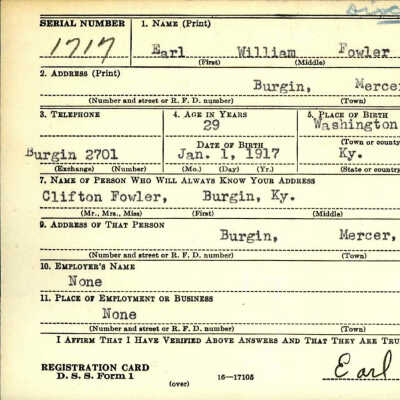 SERIAL NUMBER
1. NAME (Print)
1717
Earl William Fowler
(First) (Middle)
2. ADDRESS (Print)
Burgin, Mercer
(Number and street or R. F. D. number) (Town)
3. TELEPHONE
4. AGE IN YEARS
5. PLACE OF BIRTH
29
Washington
DATE OF BIRTH
(Town or county
Burgin 2701
Jan. 1, 1917
Ky.
(Exchange) (Number)
(Mo.) (Day) (Yr.)
(State or country
7. NAME OF PERSON WHO WILL ALWAYS KNOW YOUR ADDRESS
Clifton Fowler, Burgin, Ky.
(Mr., Mrs., Miss) (First) (Middle)
9. ADDRESS OF THAT PERSON
Burgin, Mercer,
(Number and street or R. F. D. number) (Town)
10. EMPLOYER'S NAME
None
11. PLACE OF EMPLOYMENT OR BUSINESS
None
(Number and street or R. F. D. number) (Town)
I AFFIRM THAT I HAVE VERIFIED ABOVE ANSWERS AND THAT THEY ARE TRU
REGISTRATION CARD
D. S. S. Form 1
16—17105
(over)
Earl